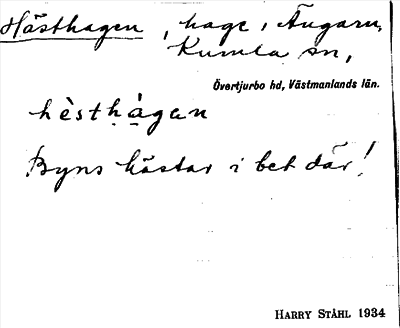 Hästhagen, hage i Ängarn,
Kumla sn,
Övertjurbo hd, Västmanlands län.
hèsthạ̀gan
Byns hästar i bet där!
HARRY STÅHL 1934